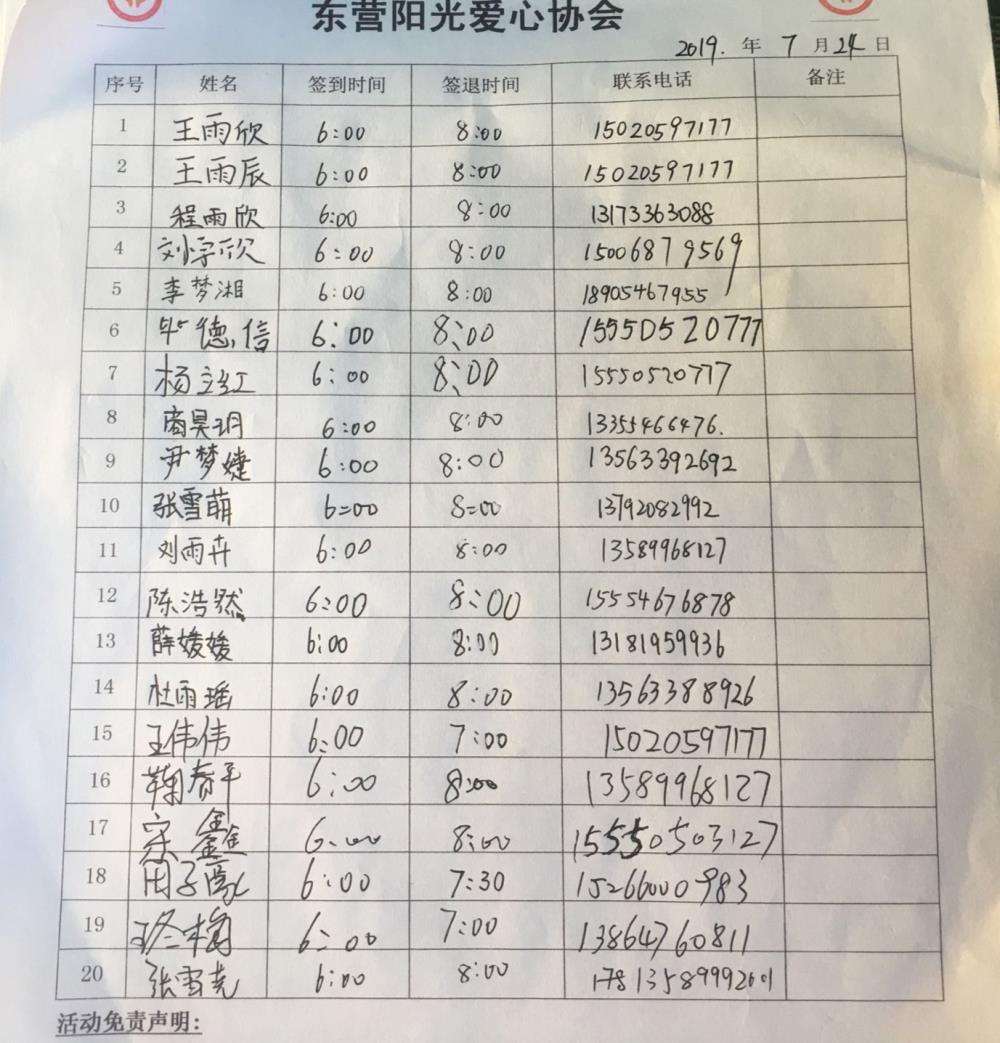 东营阳光爱心协会
2019. 年 7 月 24 日
序号 姓名 签到时间 签退时间 联系电话 备注
1 王雨欣 6:00 8:00 15020597177
2 王雨辰 6:00 8:00 15020597177
3 程雨欣 6:00 8:00 13173363088
4 刘宇欣 6:00 8:00 15006879569
5 李梦湘 6:00 8:00 18905467955
6 德信 6:00 8:00 15550520777
7 杨立红 6:00 8:00 15550520777
8 商昊玥 6:00 8:00 13355466476.
9 尹梦婕 6:00 8:00 13563392692
10 张雪萌 6:00 8:00 13792082992
11 刘雨卉 6:00 8:00 13589968127
12 陈浩然 6:00 8:00 15554676878
13 薛媛媛 6:00 8:00 13181959936
14 杜雨瑶 6:00 8:00 13563388926
15 王伟伟 6:00 7:00 15020597177
16 鞠春平 6:00 8:00 13589968127
17 宋鑫 6:00 8:00 15550503127
18 田子 6:00 7:30 15266000983
19 6:00 7:00 13864760811
20 张雷 6:00 8:00
活动免责声明: